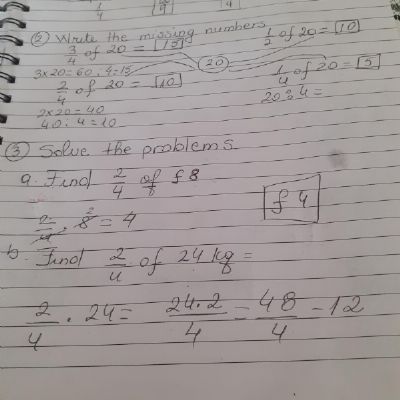 1/4
② Write the missing numbers
3/4 of 20 = 15
1/2 of 20 = 10
3x20=60:4=15
20
2/4 of 20 = 10
1/4 of 20 = 5
20:4=
2x20=40
40:4=10
③ Solve the problems
a. Find 2/4 of £8
2/4 . 8 = 4
£4
b. Find 2/4 of 24 kg =
2/4 . 24 = 24.2/4 = 48/4 - 12